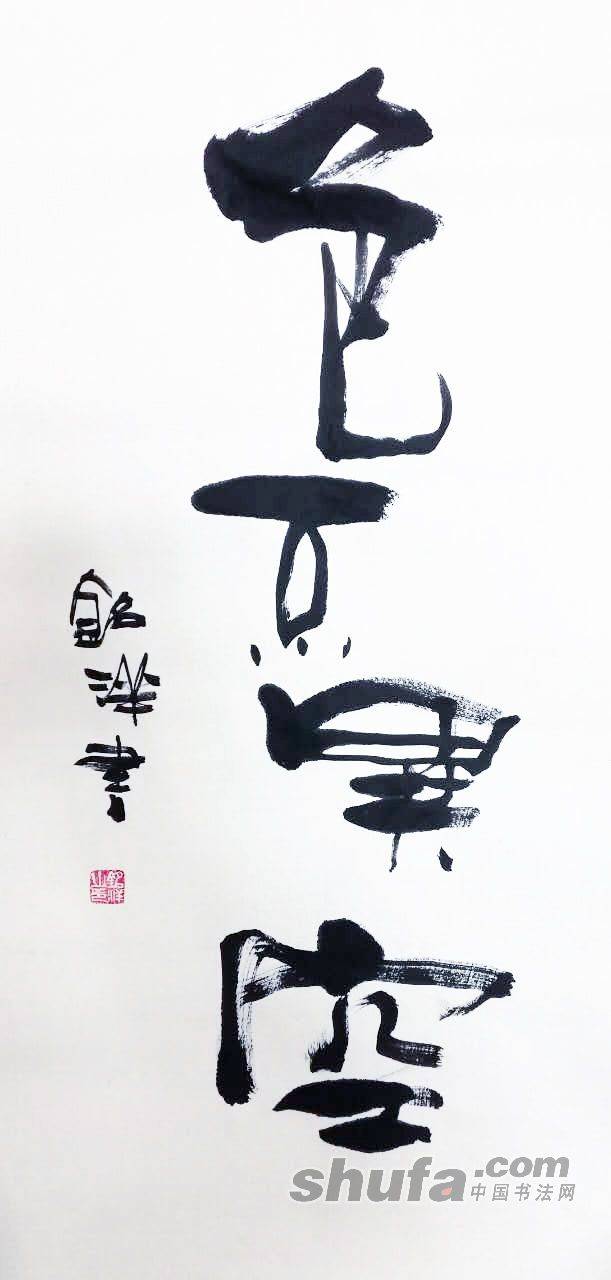 色不異空
銘洋書
shufa.com
中国书法网